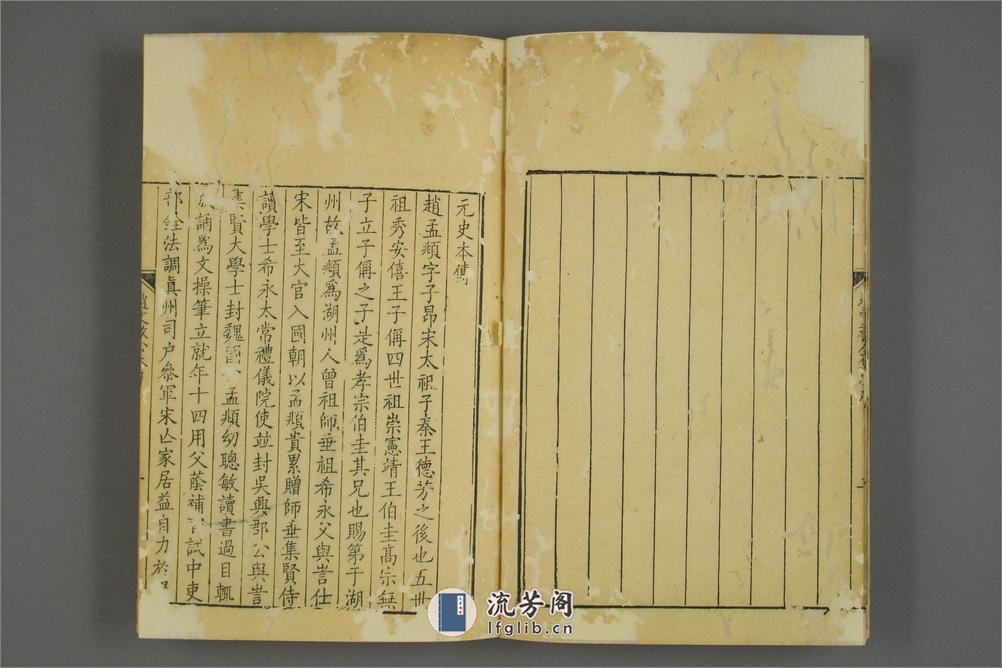 元史本傳
趙孟頫字子昂宋太祖子秦王德芳之後也五世
祖秀安僖王子偁四世祖崇憲靖王伯圭高宗無
子立子偁之子是爲孝宗伯圭其兄也賜第于湖
州故孟頫爲湖州人曾祖師垂祖希永父與訔仕
宋皆至大官入國朝以孟頫貴累贈師垂集賢侍
讀學士希永太常禮儀院使竝封吳興郡公與訔
集賢大學士封魏國公孟頫幼聰敏讀書過目輒
成誦爲文操筆立就年十四用父蔭補官試中吏
部銓法調眞州司户叅軍宋亡家居益自力於
流芳阁
lfglib.cn